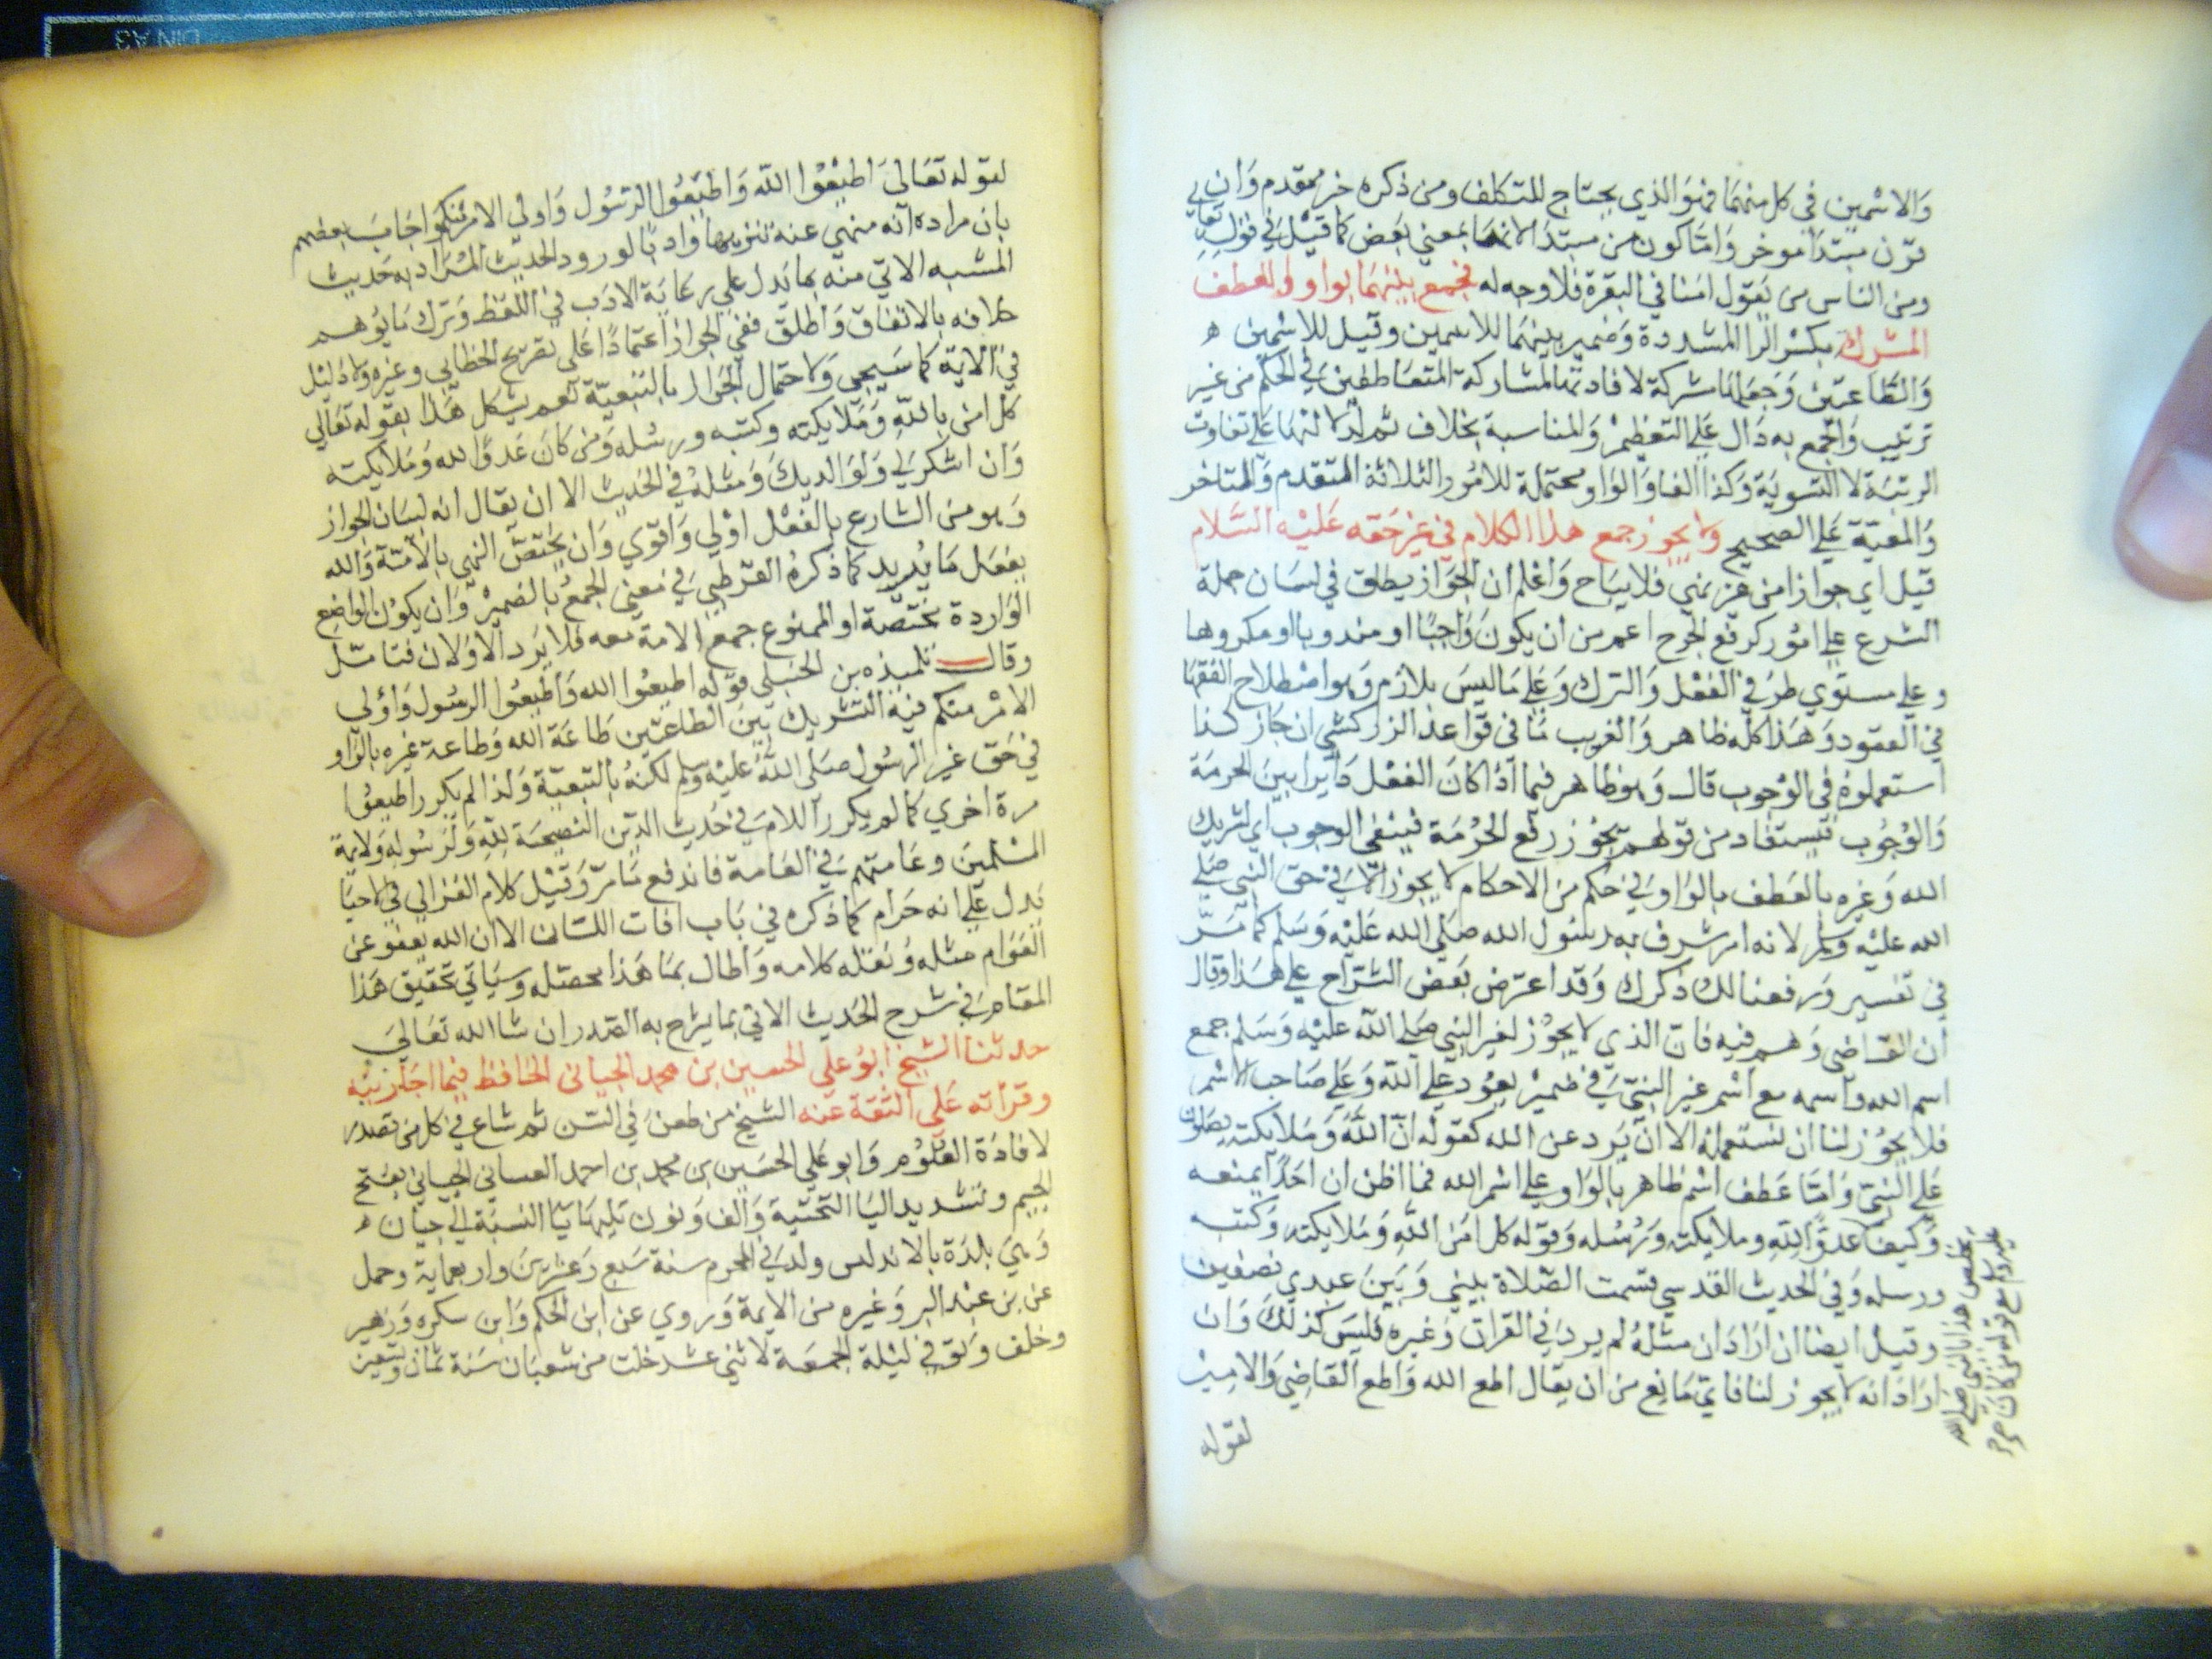 والاسمين في كل منهما فهو الذي يحتاج للتكلف ومن ذكره خبر مقدم وان لي
قرن مبتدا موخر واما كون من مبتدا لانها بمعني بعض كما قيل في قوله تعالي
ومن الناس من يقول امنا في البقرة فلا وجه له فجمع بينهما بواو العطف
المشركة بكسر الرا المشددة وضمير بينهما للاسمين وقيل للاسمين ه
والطاعتين وجعلها شركة لافادتها المشاركة المتعاطفين في الحكم من غير
ترتيب والجمع به دال علي التعظيم والمناسبة بخلاف ثم لدلالتها علي تفاوت
الرتبة لا التسوية وكذا الفا والواو محتملة للامور الثلاثة المتقدم والمتاخر
والمعية علي الصحيح ولا يجوز جمع هذا الكلام في غير حقه عليه السلام
قيل اي جوازا من غير نهي فلا يباح واعلم ان الجواز يطلق في لسان حملة
الشرع علي امور كرفع الحرج اعم من ان يكون واجبا او مندوبا او مكروها
وعلي مستوي طرفي الفعل والترك وعلي ما ليس بلازم وهو اصطلاح الفقها
في العقود وهذا كله ظاهر والغريب ما في قواعد الزركشي ان جاز كذا
استعملوه في الوجوب قال وهو ظاهر فيما اذا كان الفعل دايرا بين الحرمة
والوجوب فيستفاد من قولهم يجوز رفع الحرمة فينفي الوجوب اي تشريك
الله وغيره بالعطف بالواو في حكم من الاحكام لا يجوز الا في حق النبي صلي
الله عليه وسلم لانه امر شرف به رسول الله صلي الله عليه وسلم كما مر
في تفسير ورفعنا لك ذكرك وقد اعترض بعض الشراح علي هذا وقال
ان القاضي وهم فيه فان الذي لا يجوز لغير النبي صلي الله عليه وسلم جمع
اسم الله واسمه مع اسم غير النبي في ضمير يعود علي الله وعلي صاحب الاسم
فلا يجوز لنا ان نستعمله الا ان يرد عن الله كقوله ان الله وملايكته يصلون
علي النبي واما عطف اسم ظاهر بالواو علي اسم الله فما اظن ان احدا يمنعه
وكيف عدوا لله وملايكته ورسله وقوله كل امن الله وملايكته وكتبه
ورسله وفي الحديث القدسي قسمت الصلاة بيني وبين عبدي نصفين
وقيل ايضا ان اراد ان مثله لم يرد في القران وغيره فليس كذلك وان
اراد انه لا يجوز لنا فاي مانع من ان يقال اطع الله واطع القاضي والامير
لقوله
لقوله تعالي اطيعوا الله واطيعوا الرسول واولي الامر منكم واجاب بعضهم
بان مراده انه منهي عنه تنزيها وادبا لورود الحديث المراد به حديث
المشبه الاتي منه بما يدل علي رعاية الادب في اللفظ وترك ما يوهم
خلافه بالاتفاق واطلق نفي الجواز اعتمادا علي تصريح الخطابي وغيره ولا دليل
في الاية كما سيجي ولاحتمال الجواز بالتبعية نعم يشكل هذا بقوله تعالي
كل امن بالله وملايكته وكتبه ورسله ومن كان عدوا لله وملايكته
وان اشكر لي ولوالديك ومثله في الحديث الا ان يقال انه لبيان الجواز
وهو من الشارع بالفعل اولي واقوي وان يختص النهي بالامة والله
يفعل ما يريد كما ذكره القرطبي في معني الجمع بالضمير وان يكون المواضع
الواردة مختصة او الممنوع جمع الامة معه فلا يرد الاولان فتامل
وقال تلميذه بن الحنبلي قوله اطيعوا الله واطيعوا الرسول واولي
الامر منكم فيه التشريك بين الطاعتين طاعة الله وطاعة غيره بالواو
في حق غير الرسول صلي الله عليه وسلم لكنه بالتبعية ولذا لم يكرر اطيعوا
مرة اخري كما لم يكرر اللام في حديث الدين النصيحة لله ولرسوله ولايمة
المسلمين وعامتهم في العامة فاندفع ما مر وقيل كلام الغزالي في الاحيا
يدل علي انه حرام كما ذكره في باب افات اللسان الا ان الله يعفو عن
العوام مثله ونقله كلامه واطال بما هذا محصله وسياتي تحقيق هذا
المقام في شرح الحديث الاتي بما يشرح به الصدر ان شا الله تعالي
حدثنا الشيخ ابو علي الحسين بن محمد الجياني الحافظ فيما اجازنيه
وقراته علي الثقة عنه الشيخ من طعن في السن ثم شاع في كل من تصدر
لافادة العلوم وابو علي الحسين بن محمد بن احمد الغساني الجياني بفتح
الجيم وتشديد اليا التحتية والف ونون تليها يا النسبة الي جيان ه
وهي بلدة بالاندلس ولد في المحرم سنة سبع وعشرين واربعماية وحمل
عن بن عبد البر وغيره من الايمة وروي عن ابن الحكم وابن سكره وزهير
وخلف وتوفي ليلة الجمعة لاثني عشر خلت من شعبان سنة ثمان وتسعين